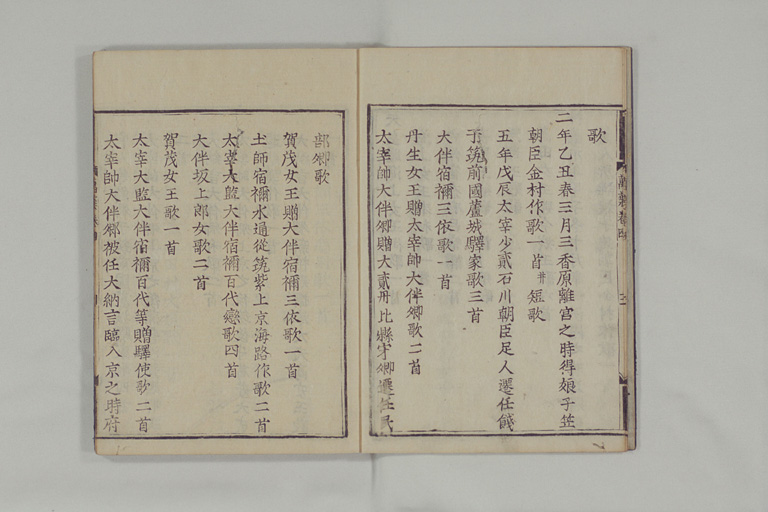 歌
二年乙丑春三月三香原離宮之時得娘子笠
朝臣金村作歌一首并短歌
五年戊辰太宰少貳石川朝臣足人遷任餞
于筑前國蘆城驛家歌三首
大伴宿禰三依歌一首
丹生女王贈太宰帥大伴卿歌二首
太宰帥大伴卿贈大貳丹比縣守卿遷任民
部卿歌
賀茂女王贈大伴宿禰三依歌一首
土師宿禰水通從筑紫上京海路作歌二首
太宰大監大伴宿禰百代戀歌四首
大伴坂上郎女歌二首
賀茂女王歌一首
太宰大監大伴宿禰百代等贈驛使歌二首
太宰帥大伴卿被任大納言臨入京之時府